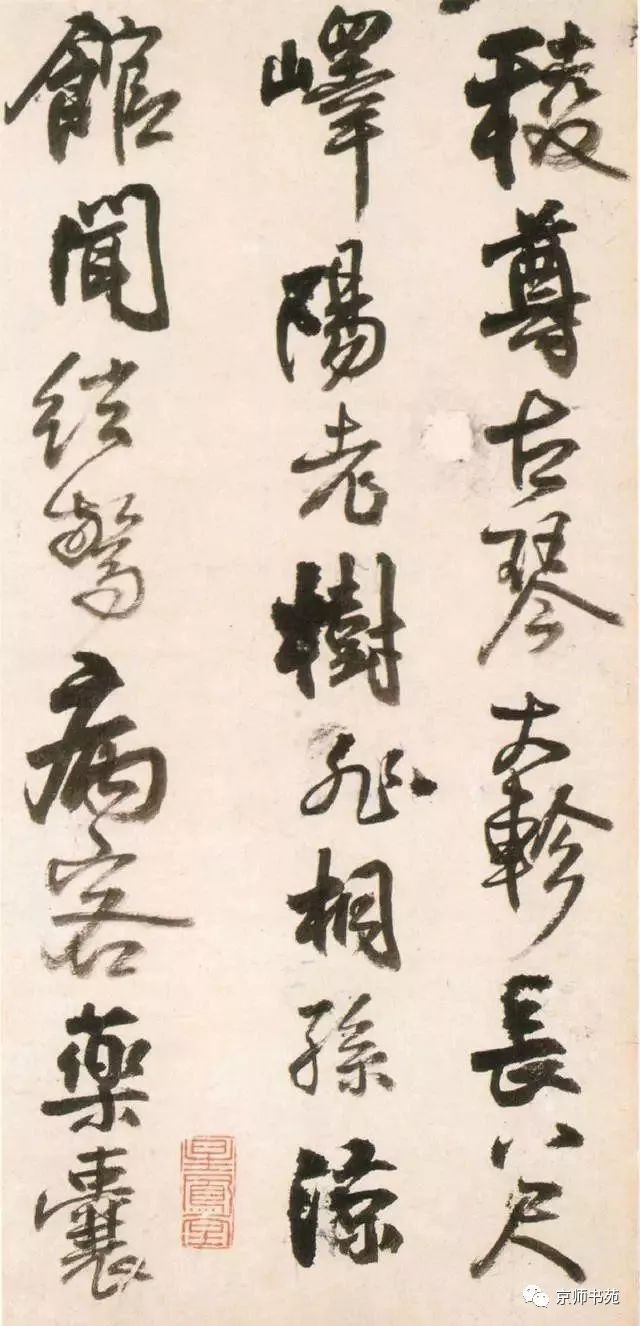 稜尊古琴大軫長八尺
嶧陽老樹非桐孫涼
館聞絃驚病客藥囊
京师书苑